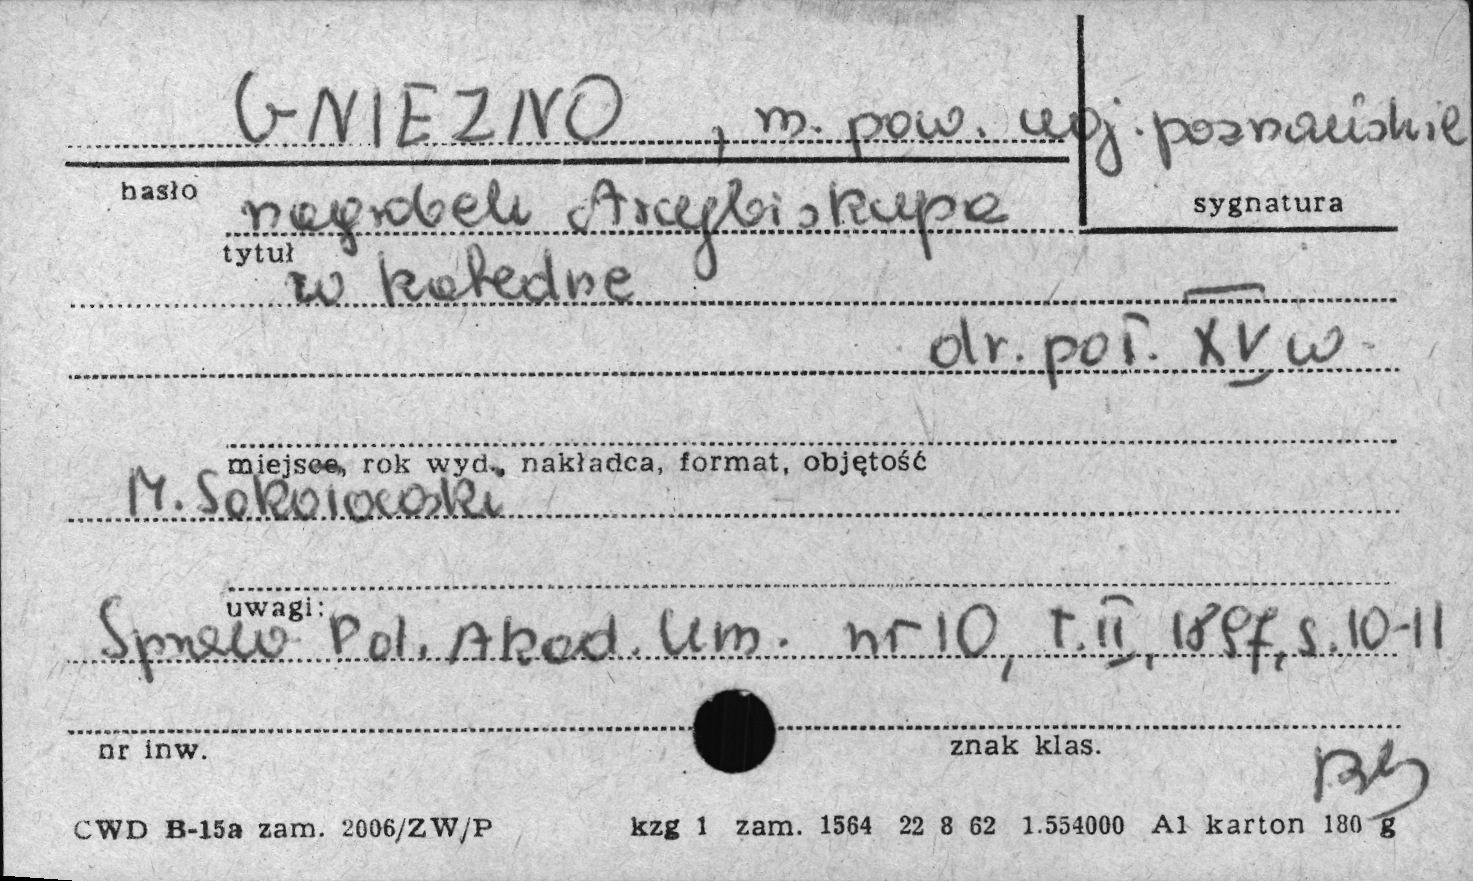 GNIEZNO, m. pow. woj. poznańskie
hasło
sygnatura
nagrobek Arcybiskupa
tytuł
w katedrze
dr. poł. XV w.
miejsce, rok wyd., nakładca, format, objętość
M. Sokołowski
uwagi:
Spraw Pol. Akad. Um. nr 10, T. II, 1897, s. 10-11
nr inw.
znak klas.
CWD B-15a zam. 2006/ZW/P kzg 1 zam. 1564 22 8 62 1.554000 A1 karton 180 g